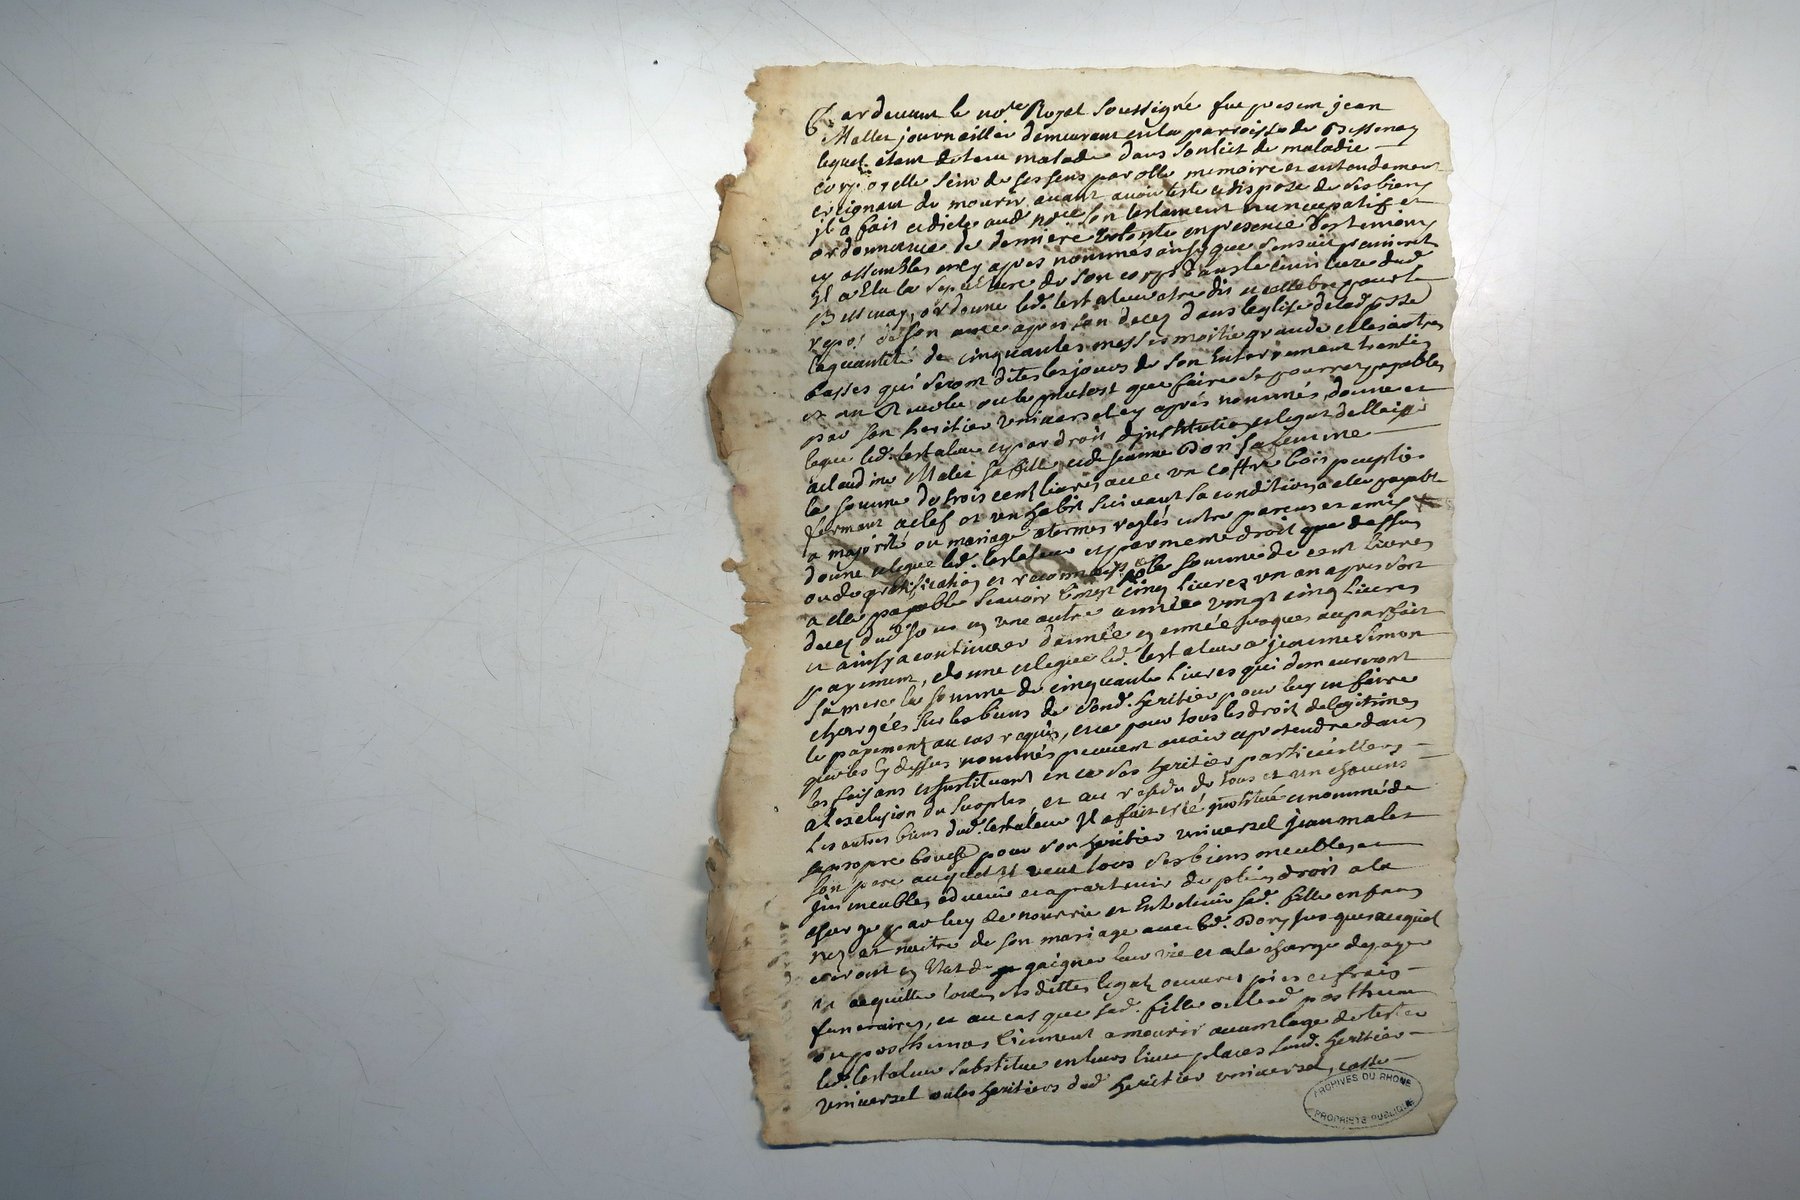 Pardevant le no.re Royal soussigné fut present jean
Mallet journaillier demeurant en la parroisse de Bessenay
lequel etant detenu malade dans son lict de maladie
corporelle sein de ses sens parolle memoire et entendement
creignant de mourir avant avoir testé et disposé de ses biens
il a fait et dicté aud no.re son testament nuncupatif et
ordonnance de derniere volonté en presence des temoins
cy assemblés en cy apres nommés ainsy que sensuit premierem.t
il a elu la sepulture de son corps dans le cimitiere dud
Bessenay, ordonne led. testateur etre dit et celebre pour le
repos de son ame apres son decez dans leglise delad psse
la quantité de cinquantes messes moitié grande et les autres
basses qui seront dites les jours de son enterrement trentin
et an revolu ou le plutost que faire se pourra payables
par son heritier universel cy aprés nommés, donne et
legue led. testateur et par droit dinstitution et legat delleisse
a claudine Malet sa fille et de jeanne Dory sa femme
la somme de trois cent livres avec un coffre bois peuplie
fermant a clef et un habit suivant sa condition a elle payable
a majorité ou mariage a termes reglés entre parens et amis
donne et legue led. testateur et par meme droit que dessus
ou de gratification et recompense la somme de cent livres
a elle payable scavoir vingt cinq livres un an apres son
decez dud jour en une autre année vingt cinq livres
et ainsy a continuer dannée en année jusques au parfait
payement, donne et legue led. testateur a jeanne Simon
sa mere la somme de cinquante livres qui demeureront
chargées sur les biens de sond. heritier pour luy en faire
le payement au cas requis, et ce pour tous les droit de legitimes
que les cy dessus nommés peuvent avoir et pretendre dans
les faisans et instituant en ce ses heritier particuilliers
a lexclusion du suoples, et au residu de tous et un chacuns
les autres biens dud. testateur il a fait crée institué et nommé de
sa propre bouche pour son heritier universel jean malet
son pere auquel il veut tous ses biens meubles et
jmmeubles advenir et apartenir de plein droit a la
charge par luy de nourrir et entretenir sad. fille enfans
nez et naitre de son mariage avec lad. Dory jusques a ce quil
seront en état de gaigner leur vie et a la charge de payer
et acquitter toutes ses dettes legats oeuvres pies et frais
funeraires, et au cas que sad. fille ou lesd posthume
ou posthumes viennent a mourir avant lage de tester
led. testateur substitue en leurs lieu places sond. heritier
universel ou les heritiers dud heritier universel, casse
ARCHIVES DU RHONE
PROPRIETE PUBLIQUE